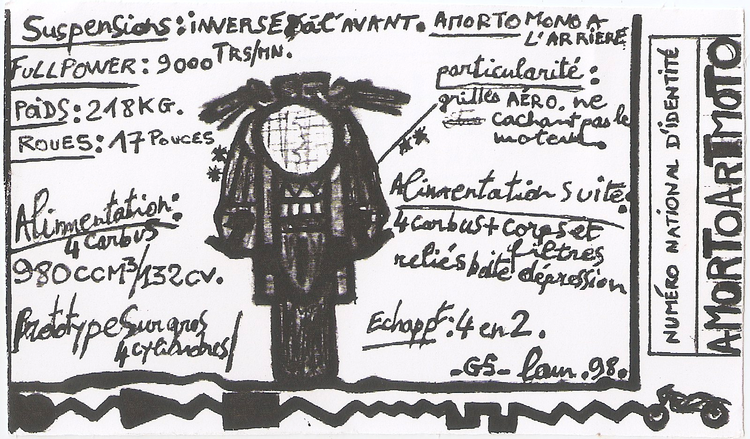 Suspensions: INVERSÉ à L'AVANT. AMORTO MONO A
L'ARRIERE
FULL POWER: 9000 TRS/MN.
POIDS: 218 KG.
ROUES: 17 POUCES
**
particularité:
grilles AÉRO. ne
cachant pas le
moteur.
**
Alimentation:
4 carbus
980CCM³/132CV.
Prototype sur gros
4 cylindres/
Alimentation suite:
4 carbus + corps et
filtres
reliés boite dépression
Echappt: 4 en 2.
-GS- 98.
NUMÉRO NATIONAL D'IDENTITÉ
AMORTOARTMOTO